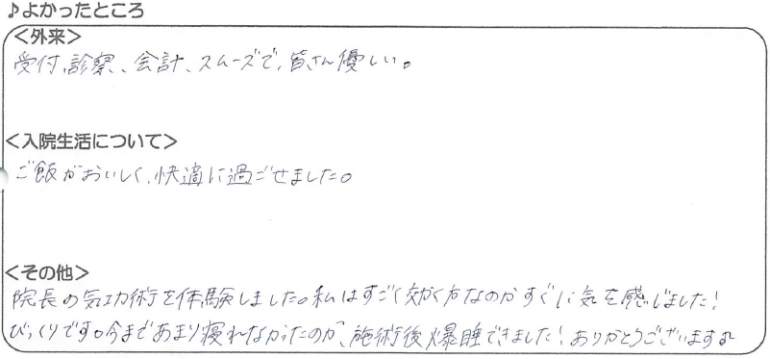 ♪よかったところ
<外来>
受付、診察、会計、スムーズで、皆さん優しい。
<入院生活について>
ご飯がおいしく、快適に過ごせました。
<その他>
院長の気功術を体験しました。私はすごく効く方なのかすぐに気を感じました!
びっくりです。今まであまり寝れなかったのが、施術後爆睡できました!ありがとうございます。